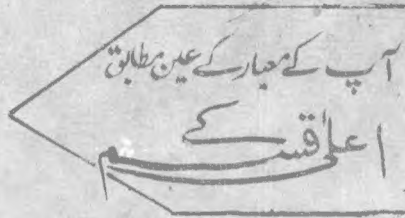 آپ کے معیار کے عین مطابق
اعلیٰ قسم کے